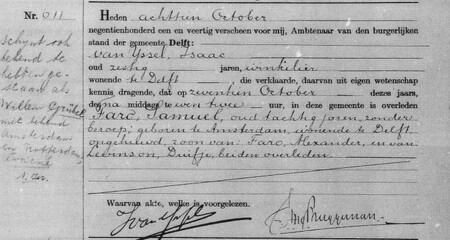 No. 611
schijnt ook
bekend te
hebben ge-
staan als
Willem
met
Amsterdam
en Rotterdam
Heden achttien October
negentienhonderd een en veertig verscheen voor mij, Ambtenaar van den burgerlijken
stand der gemeente Delft:
van IJssel, Isaac
oud zestig jaren, winkelier
wonende te Delft, die verklaarde, daarvan uit eigen wetenschap
kennis dragende, dat op zeventien October dezes jaars,
des na middags twee uur, in deze gemeente is overleden
Faro, Samuel, oud tachtig jaren, zonder
beroep, geboren te Amsterdam, wonende te Delft,
ongehuwd, zoon van Faro, Alexander, en van
Levinson, Duifje, beiden overleden.
Waarvan akte, welke is voorgelezen.
IvanIJssel
Bruggeman